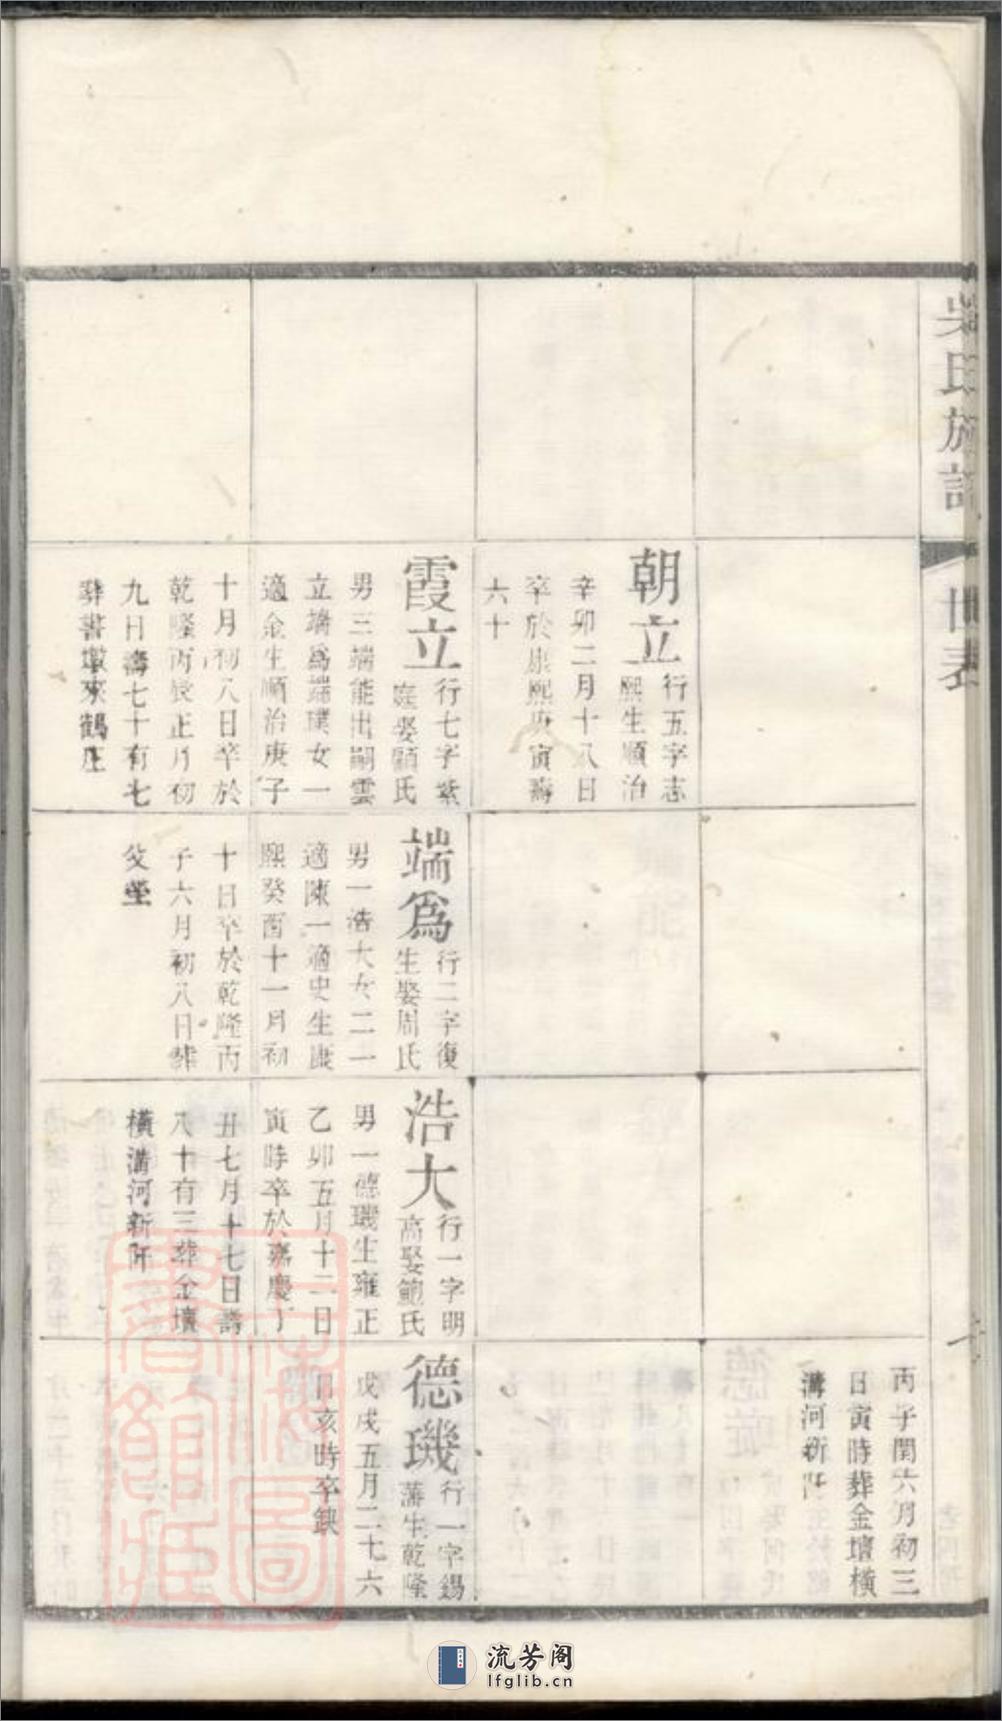 吳氏族譜
世表
朝立
行五字志
熙生順治
辛卯二月十八日
卒於康熙庚寅壽
六十
霞立
行七字紫
庭娶顧氏
男三端能出嗣雲
立端爲端璞女一
適金生順治庚子
十月初八日卒於
乾隆丙辰正月初
九日壽七十有七
葬書墩來鶴庄
端爲
行二字復
生娶周氏
男一浩大女二一
適陳一適史生康
熙癸酉十一月初
十日卒於乾隆丙
子六月初八日葬
父塋
浩大
行一字明
高娶鮑氏
男一德璣生雍正
乙卯五月十二日
寅時卒於嘉慶丁
丑七月十七日壽
八十有三葬金壇
橫溝河新阡
丙子閏六月初三
日寅時葬金壇橫
溝河新阡
德璣
行一字錫
藩生乾隆
戊戌五月二十六
日亥時卒缺
流芳阁
lfglib.cn